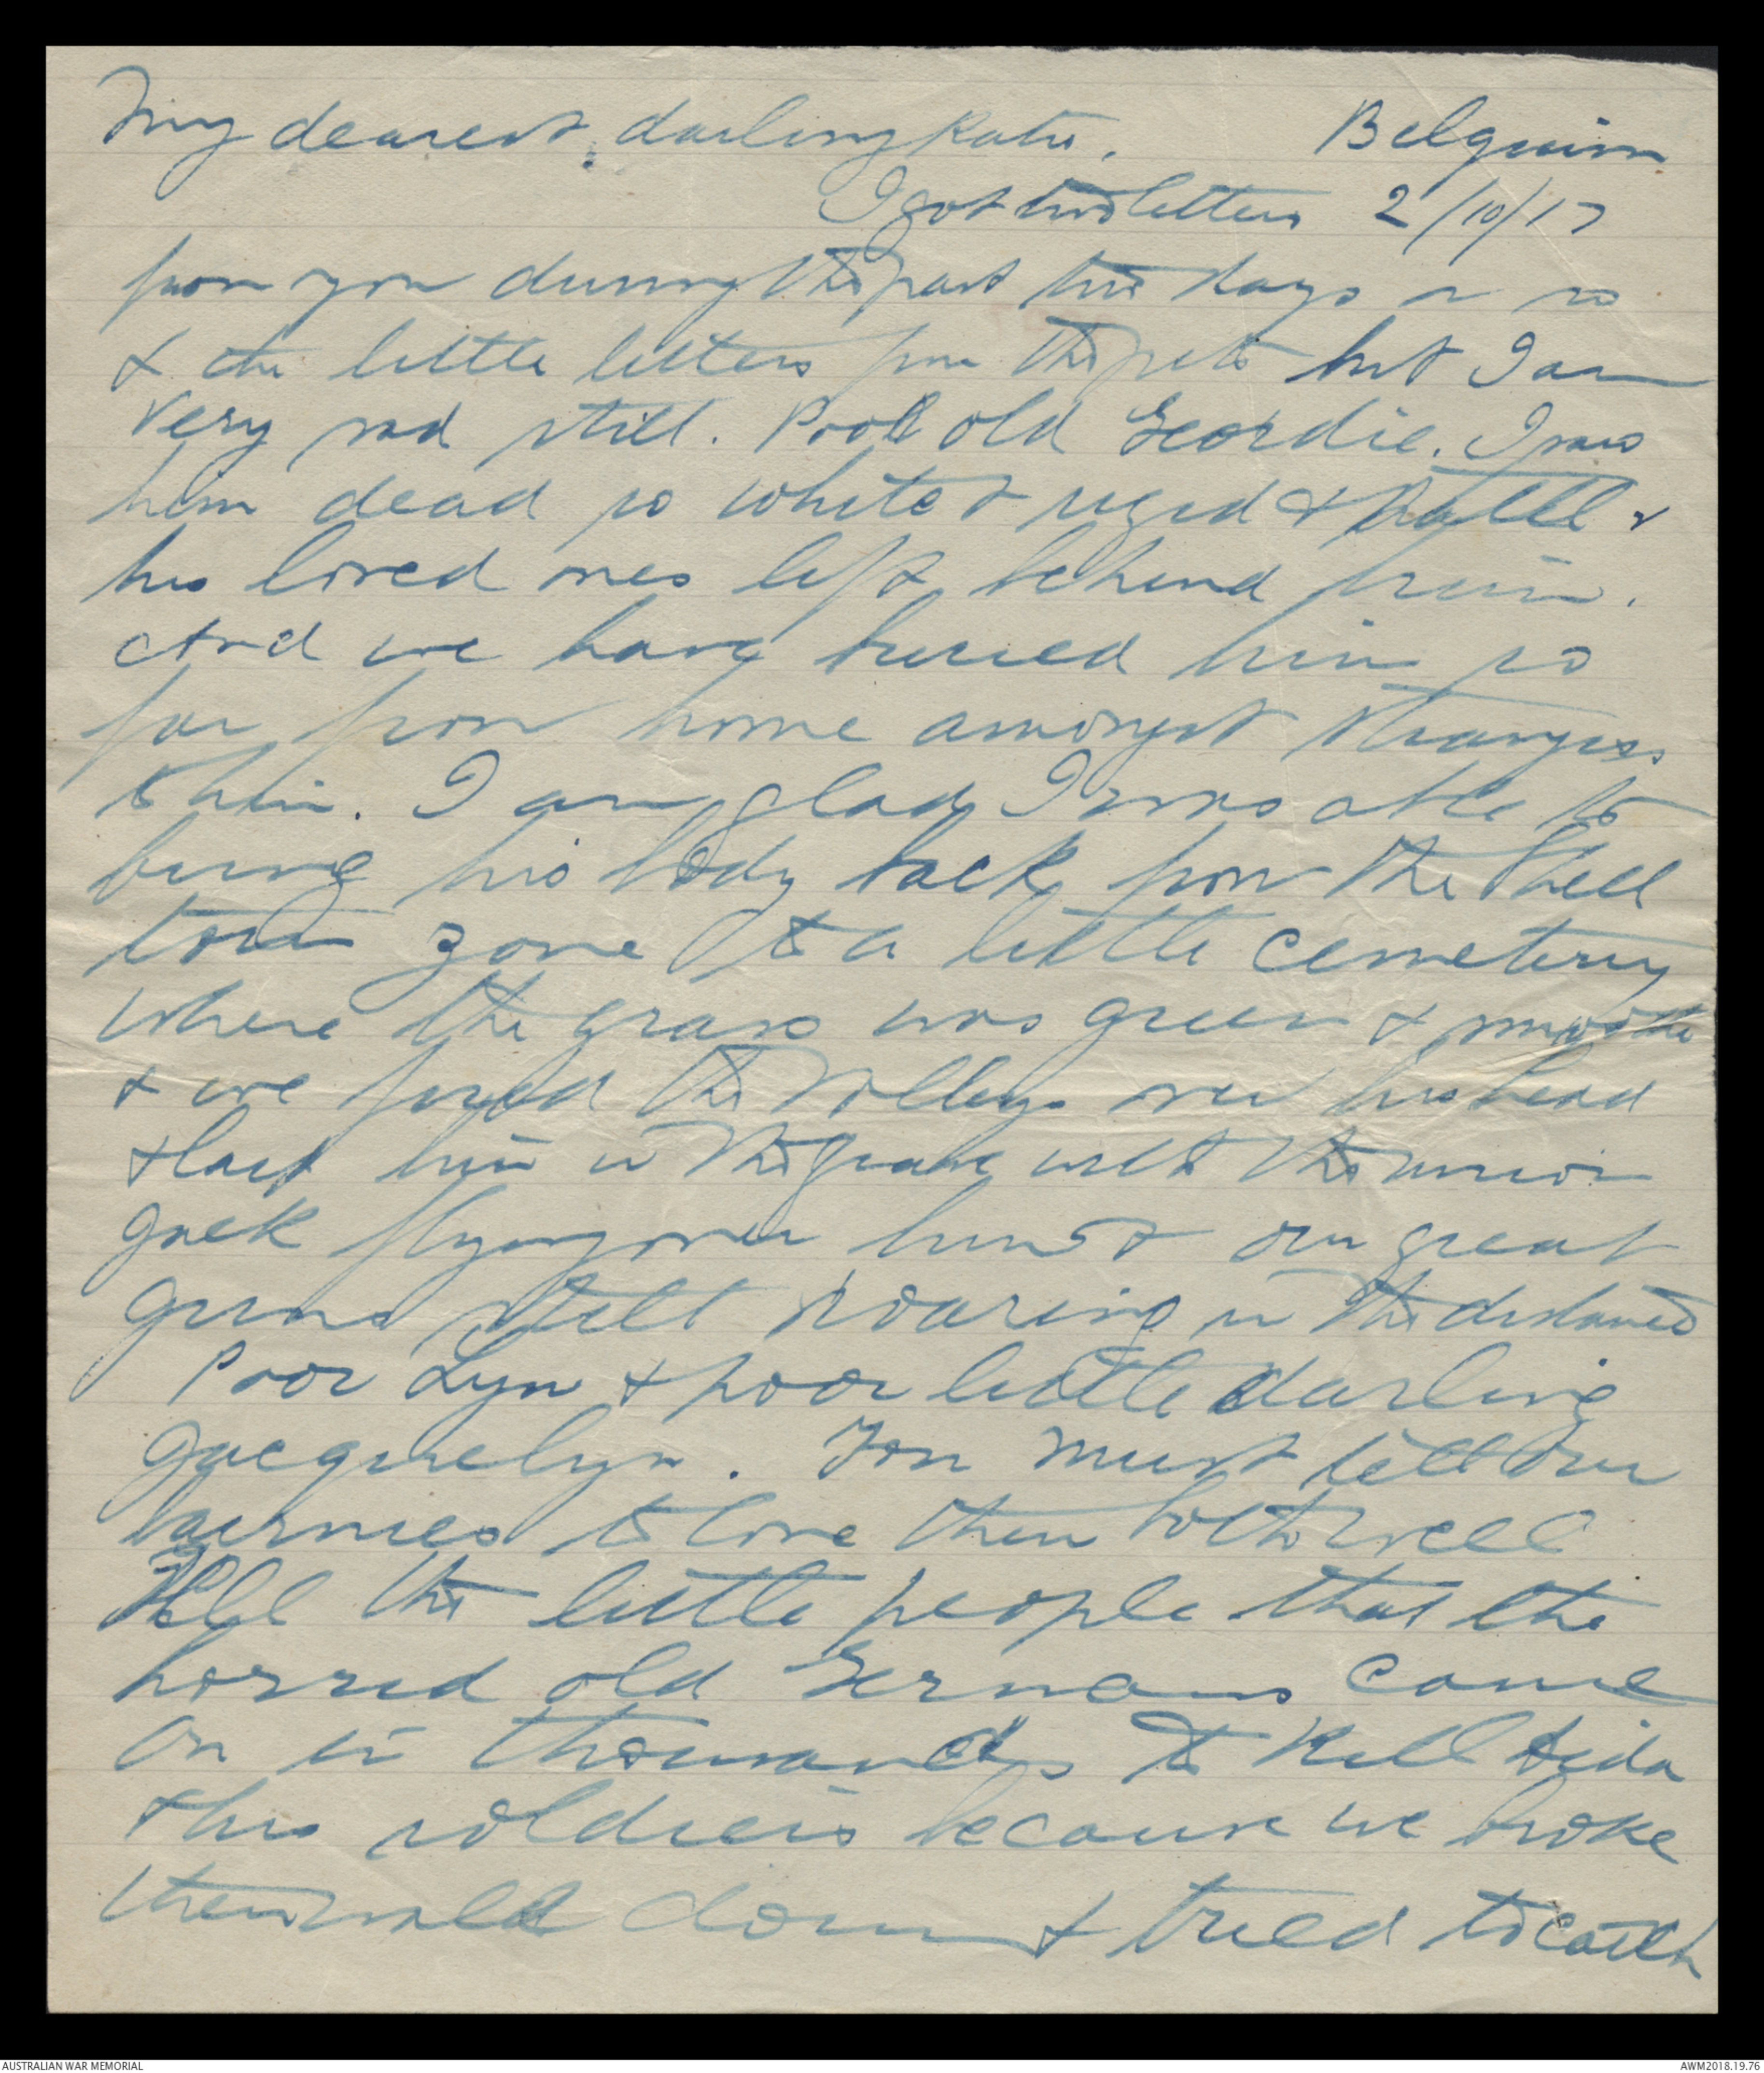 My dearest darling Katie. Belguim
I got two letters 2/10/17
from you during the past two days or so
& the little letters from the pets but I am
very sad still. Poor old Geordie. I saw
him dead so white & rigid & still &
his loved ones left behind him.
And we have buried him so
far from home amongst strangers
to him. I am glad I was able to
bring his body back from the shell
torn zone to a little cemetery
where the grass was green & smooth
& we fired the volleys over his head
& laid him in the grave with the union
Jack flying over him & our great
guns still roaring in the distance
Poor Lyn & poor little darling
Jacquelyn. You must tell our
bairnies to love them both well
Tell the little people that the
horrid old Germans came
on in thousands to kill Dida
& his soldiers because we broke
their wall down & tried to catch
AUSTRALIAN WAR MEMORIAL
AWM2018.19.76